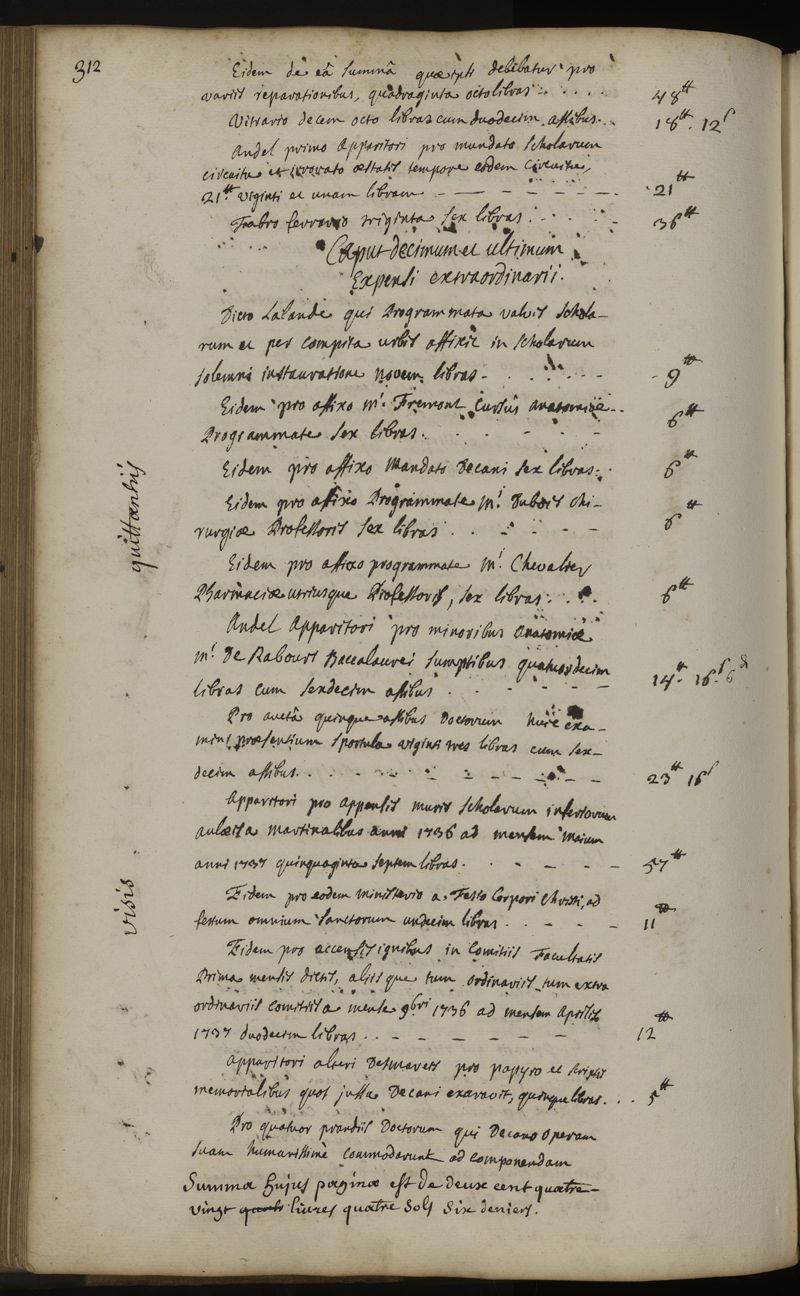 312
Eidem de eâ summâ quæ ipsi debebatur pro
variis reparationibus, quadraginta octo libras . . . . . 48ᵗᵗ
Vitrario decem octo libras cum duodecim assibus . . 18ᵗᵗ. 12ˢ
Andel primo Apparitori pro mandato Scholarum
circuitu et æstatis tempore eodem circuitu,
21ᵗᵗ viginti et unam libram - - - - - - 21ᵗᵗ
Fabro ferrario triginta sex libras . . . . 36ᵗᵗ
Caput decimum et ultimum
Expensi extraordinarii.
Dicto Lalande qui Programmata valvis Schola-
rum et per compita urbis affixit in Scholarum
solemni instauratione novem libras - . . . - - 9ᵗᵗ
Eidem pro affixo mʳ. Fremont cursûs anatomici
Programmate sex libras . . . - - 6ᵗᵗ
Eidem pro affixo Mandato Decani sex libras . . 6ᵗᵗ
Eidem pro affixo Programmate mʳ. Dubois Chi-
rurgiæ Professoris sex libras . . - - - 6ᵗᵗ
Eidem pro affixo programmate mʳ. Chevalier
Pharmaciæ utriusque Professoris, sex libras . . . 6ᵗᵗ
Andel Apparitori pro minoribus Anatomiæ
mʳ. De Rabours Baccalaurei sumptibus quatuordecim
libras cum sexdecim assibus . . - - - 14ᵗᵗ. 16ˢ. 6ᵈ
Pro auctâ quinque assibus Doctorum huic exa-
mini præsentium sportula viginti tres libras cum sex-
decim assibus. . . - - - - - 23ᵗᵗ 16ˢ
Apparitori pro appensis muris Scholarum inferiorum
aulæis a martinalibus anni 1736 ad mensem maium
anni 1737 quinquaginta septem libras . . - - - 57ᵗᵗ
Eidem pro eodem ministerio a Festo Corporis Christi, ad
festum omnium Sanctorum undecim libras . . - - - 11ᵗᵗ
Eidem pro accensis ignibus in Comitiis Facultatis
Prima mensis dictis, aliisque tum ordinariis tum extra
ordinariis comitiis a mense 9bri 1736 ad mensem Aprilis
1737 duodecim libras . . - - - - - 12ᵗᵗ
Apparitori alteri Desmarets pro papyro et scriptis
memorialibus quos jussu Decani exaravit, quinque libras . . . 5ᵗᵗ
Pro quatuor prandiis Doctorum qui Decano operam
suam humanissime commodarunt ad componendam
Summa hujus paginæ est de deux cent quatre-
vingt livres quatre sols six deniers.
visis
quittantiis